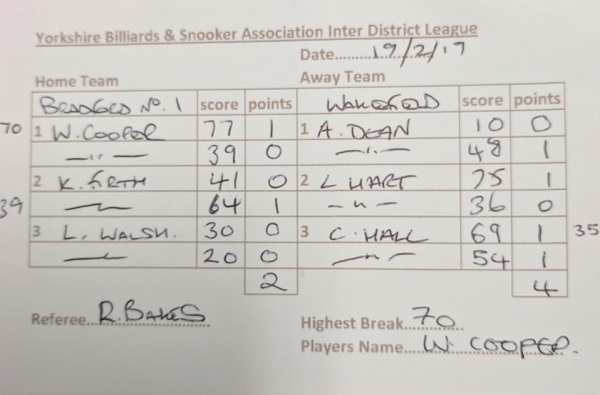 Yorkshire Billiards & Snooker Association Inter District League
Date..........19/2/17
Home Team Away Team
BRADFORD No. 1 score points WAKEFIELD score points
70 1 W. COOPER 77 1 1 A. DEAN 10 0
— " — 39 0 — " — 48 1
2 K. FIRTH 41 0 2 L HART 75 1
39 — " — 64 1 — " — 36 0
3 L. WALSH. 30 0 3 C. HALL 69 1 35
— " — 20 0 — " — 54 1
2 4
Referee..R. BAKES
Highest Break..70
Players Name....W. COOPER.